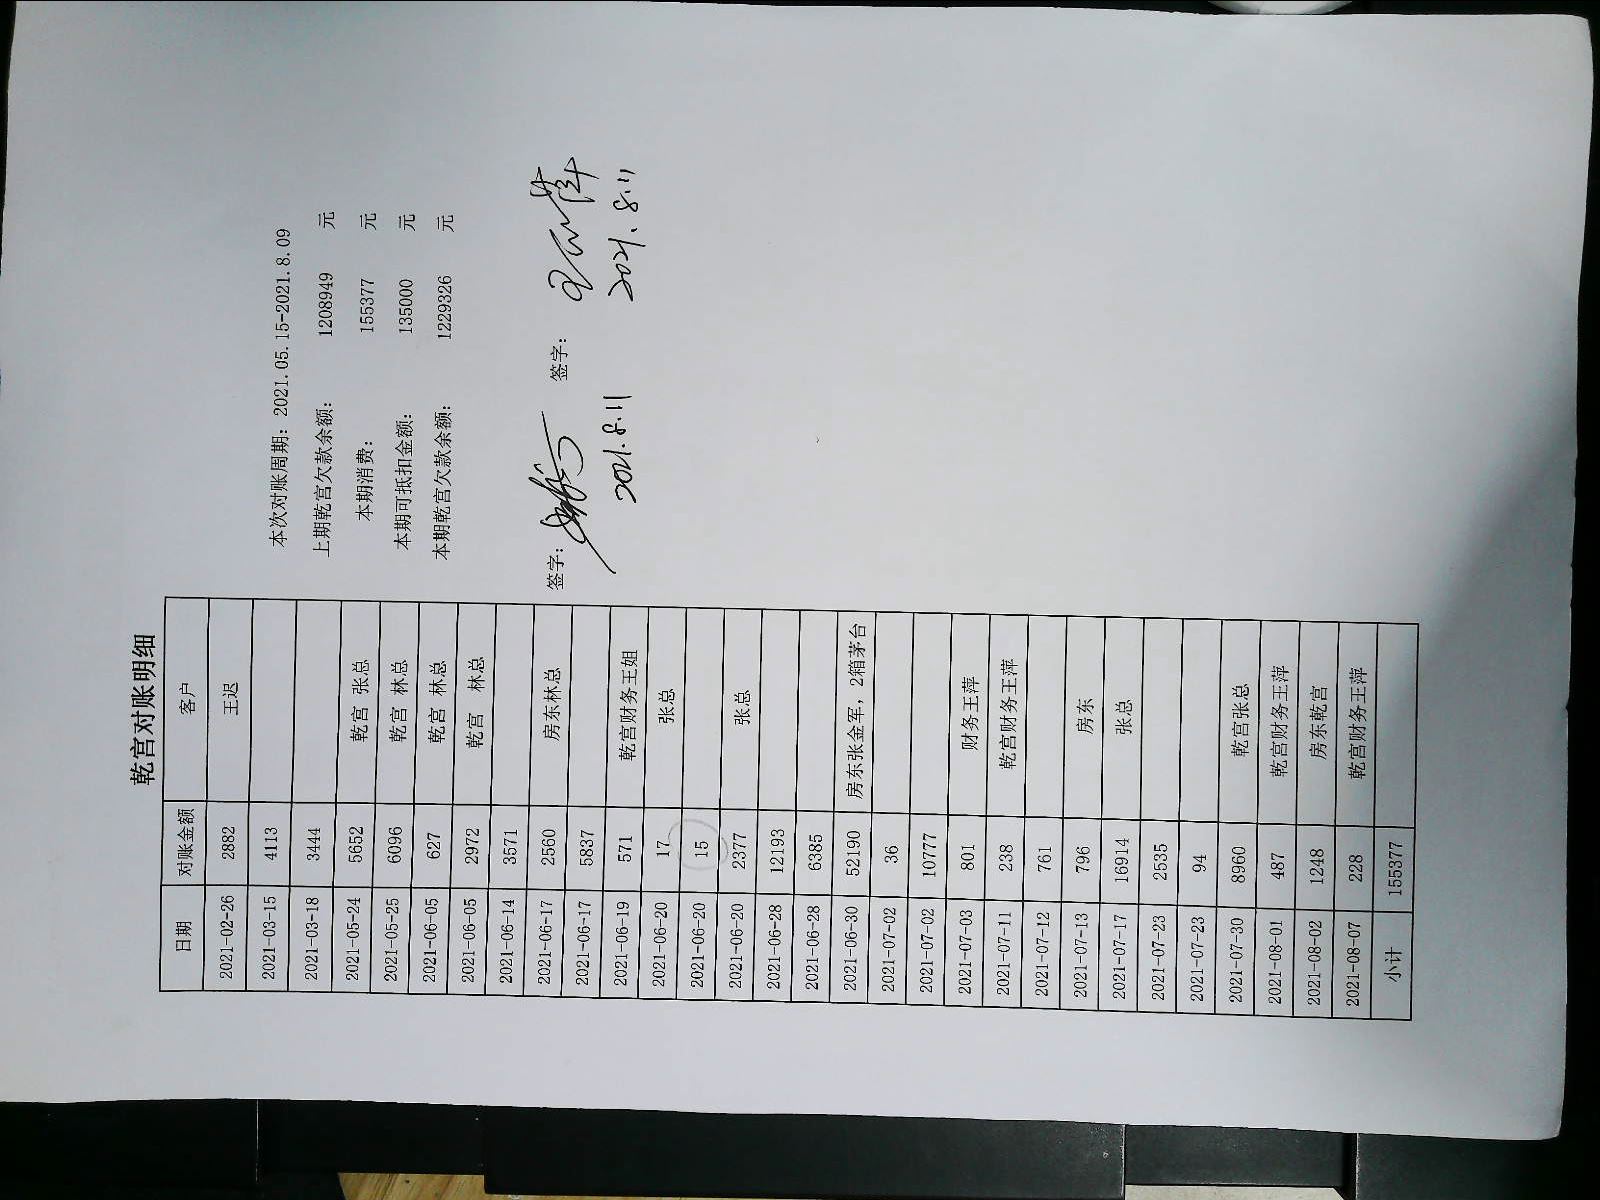 乾宫对账明细
日期 对账金额 客户
2021-02-26 2882 王迟
2021-03-15 4113
2021-03-18 3444
2021-05-24 5652 乾宫 张总
2021-05-25 6096 乾宫 林总
2021-06-05 627 乾宫 林总
2021-06-05 2972 乾宫 林总
2021-06-14 3571
2021-06-17 2560 房东林总
2021-06-17 5837
2021-06-19 571 乾宫财务王姐
2021-06-20 17 张总
2021-06-20 15
2021-06-20 2377 张总
2021-06-28 12193
2021-06-28 6385
2021-06-30 52190 房东张金军，2箱茅台
2021-07-02 36
2021-07-02 10777
2021-07-03 801 财务王萍
2021-07-11 238 乾宫财务王萍
2021-07-12 761
2021-07-13 796 房东
2021-07-17 16914 张总
2021-07-23 2535
2021-07-23 94
2021-07-30 8960 乾宫张总
2021-08-01 487 乾宫财务王萍
2021-08-02 1248 房东乾宫
2021-08-07 228 乾宫财务王萍
小计 155377
本次对账周期：2021.05.15-2021.8.09
上期乾宫欠款余额： 1208949 元
本期消费： 155377 元
本期可抵扣金额： 135000 元
本期乾宫欠款余额： 1229326 元
签字： 签字：
2021.8.11 2021.8.11